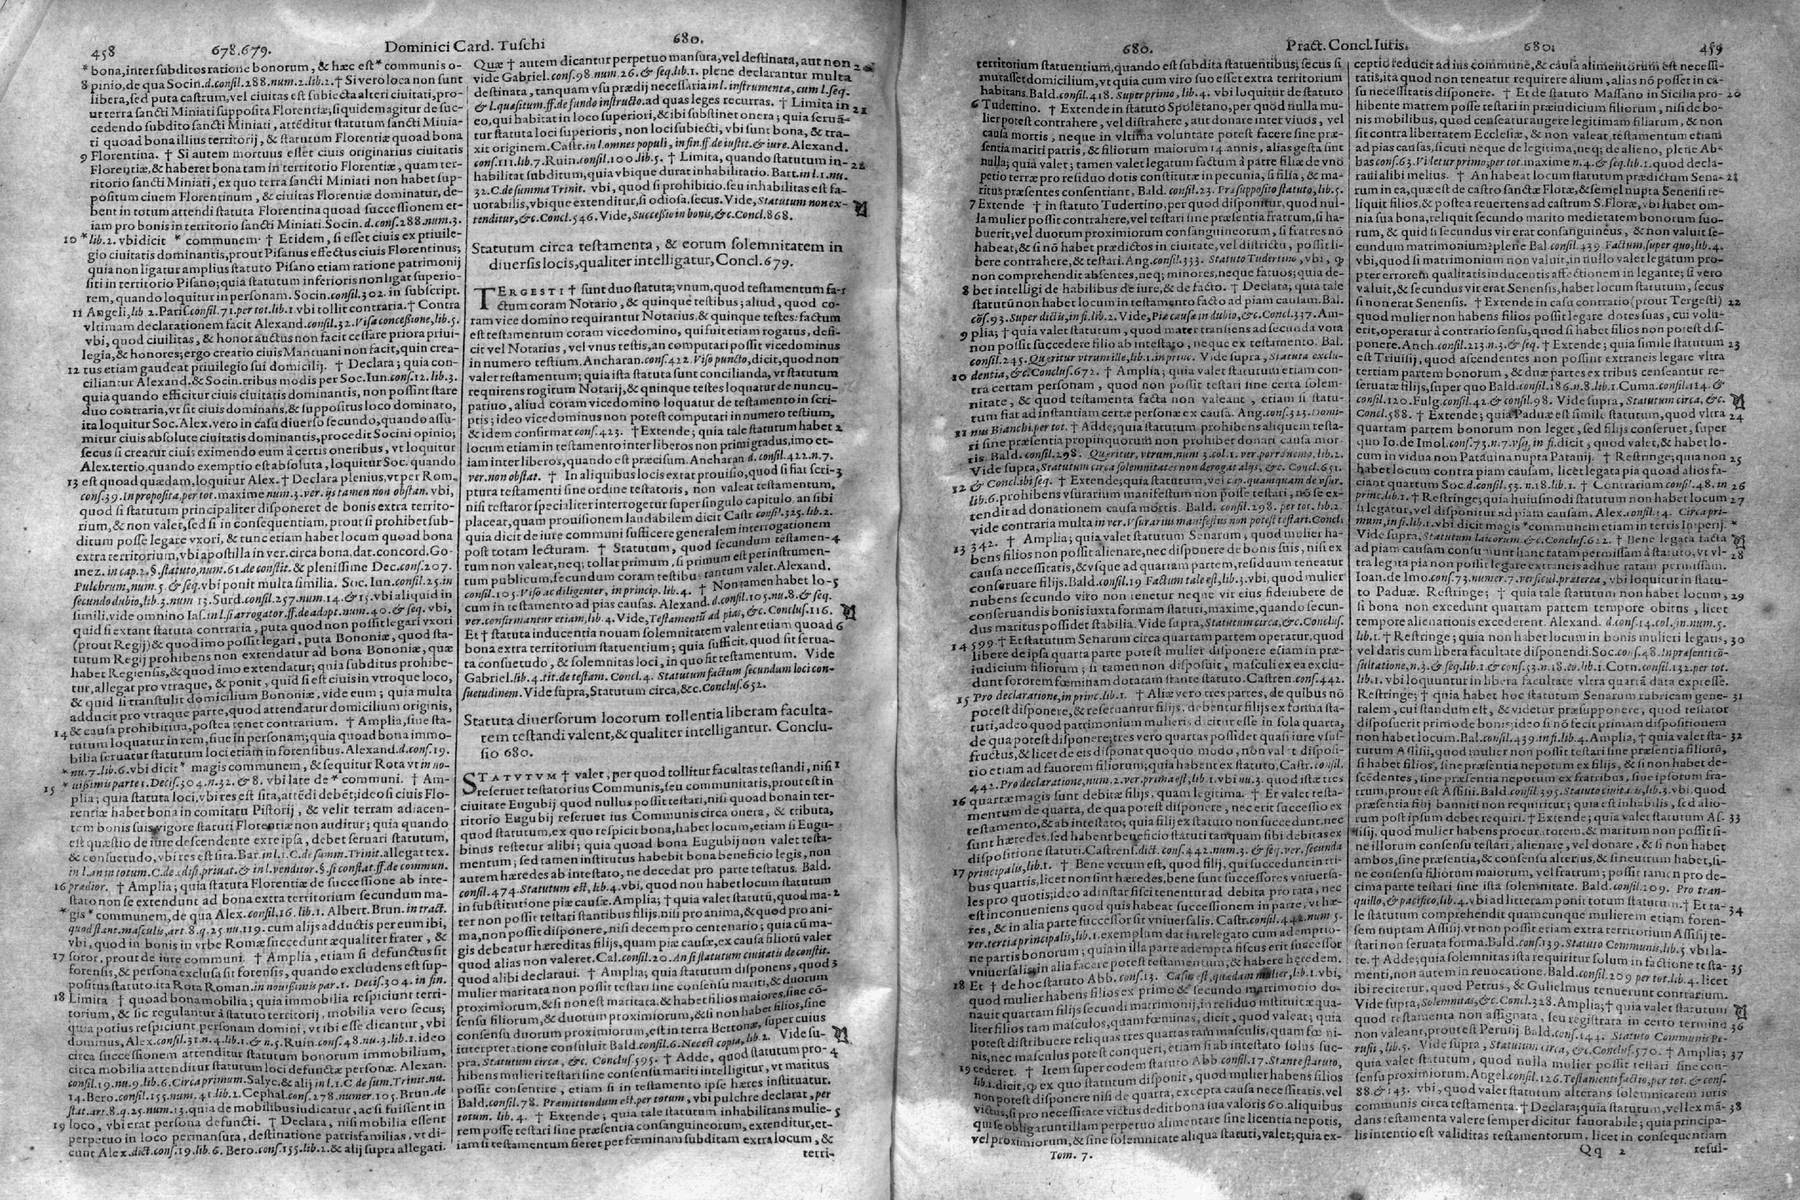 458
678.679.
Dominici Card. Tuſchi
680.
* bona, inter ſubditos ratione bonorum, & hæc eſt * communis o-
8 pinio, de qua Socin. d. conſil. 288. num. 2. lib. 2. † Si vero loca non ſunt
libera, ſed puta caſtrum, vel ciuitas eſt ſubiecta alteri ciuitati, pro-
ut terra ſancti Miniati ſuppoſita Florentiæ, ſiquidem agitur de ſuc-
cedendo ſubdito ſancti Miniati, attēditur ſtatutum ſancti Minia-
ti quoad bona illius territorij, & ſtatutum Florentiæ quoad bona
9 Florentina. † Si autem mortuus eſſet ciuis originarius ciuitatis
Florentiæ, & haberet bona tam in territorio Florentiæ, quam ter-
ritorio ſancti Miniati, ex quo terra ſancti Miniati non habet ſup-
poſitum ciuem Florentinum, & ciuitas Florentiæ dominatur, de-
bent in totum attendi ſtatuta Florentina quoad ſucceſſionem et-
iam pro bonis in territorio ſancti Miniati. Socin. d. conſ. 288. num. 3.
10 * lib. 2. vbi dicit * communem. † Et idem, ſi eſſet ciuis ex priuile-
gio ciuitatis dominantis, prout Piſanus effectus ciuis Florentinus;
quia non ligatur amplius ſtatuto Piſano etiam ratione patrimonij
ſiti in territorio Piſano; quia ſtatutum inferioris non ligat ſuperio-
rem, quando loquitur in perſonam. Socin. conſil. 302. in ſubſcript.
11 Angeli, lib 2. Pariſ. conſil. 71. per tot. lib 1. vbi tollit contraria. † Contra
vltimam declarationem facit Alexand. conſil. 32. Viſa conceſſione, lib. 5.
vbi, quod ciuilitas, & honor auctus non facit ceſſare priora priui-
legia, & honores; ergo creatio ciuis Mantuani non facit, quin crea-
12 tus etiam gaudeat priuilegio ſui domicilij. † Declara; quia con-
ciliantur Alexand. & Socin. tribus modis per Soc. Iun. conſ. 12. lib. 3.
quia quando efficitur ciuis ciuitatis dominantis, non poſſint ſtare
duo contraria, vt ſit ciuis dominans, & ſuppoſitus loco dominato,
ita loquitur Soc. Alex. vero in caſu diuerſo ſecundo, quando aſſu-
mitur ciuis abſolute ciuitatis dominantis, procedit Socini opinio;
ſecus ſi creatur ciuis eximendo eum à certis oneribus, vt loquitur
Alex. tertio. quando exemptio eſt abſoluta, loquitur Soc. quando
13 eſt quoad quædam, loquitur Alex. † Declara plenius, vt per Rom.
conſ. 39. in propoſita, per tot. maxime num. 3. ver. ijs tamen non obſtan. vbi,
quod ſi ſtatutum principaliter diſponeret de bonis extra territo-
rium, & non valet, ſed ſi in conſequentiam, prout ſi prohibet ſub-
ditum poſſe legare vxori, & tunc etiam habet locum quoad bona
extra territorium, vbi apoſtilla in ver. circa bona. dat. concord. Go-
mez. in cap. 2. §. ſtatuto, num. 61. de conſtit. & pleniſſime Dec. conſ. 207.
Pulchrum, num. 5. & ſeq. vbi ponit multa ſimilia. Soc. Iun. conſil. 25. in
ſecundo dubio, lib. 3. num 13. Surd. conſil. 257. num. 14. & 15. vbi aliquid in
ſimili, vide omnino Iaſ. in l. ſi arrogator. ff. de adopt. num. 40. & ſeq. vbi,
quid ſi extant ſtatuta contraria, puta quod non poſſit legari vxori
(prout Regij) & quod imo poſſit legari, puta Bononiæ, quod ſta-
tutum Regij prohibens non extendatur ad bona Bononiæ, quæ
habet Regienſis, & quod imo extendatur; quia ſubditus prohibe-
tur, allegat pro vtraque, & ponit, quid ſi eſt ciuis in vtroque loco,
& quid ſi tranſtulit domicilium Bononiæ, vide eum; quia multa
adducit pro vtraque parte, quod attendatur domicilium originis,
habet prohibitum, poſtea tenet contrarium. † Amplia, ſiue ſta-
14 tutum loquatur in rem, ſiue in perſonam; quia quoad bona immo-
bilia ſeruatur ſtatutum loci etiam in forenſibus. Alexand. d. conſ. 19.
* nu. 7. lib. 6. vbi dicit * magis communem, & ſequitur Rota vt in no-
15 * uiſſimis parte 1. Deciſ. 304. n. 32. & 8. vbi late de * communi. † Am-
plia; quia ſtatuta loci, vbi res eſt ſita, attēdi debēt; ideo ſi ciuis Flo-
rentiæ habet bona in comitatu Piſtorij, & velit terram adiacen-
tem bonis ſuis vigore ſtatuti Florentiæ non auditur; quia quando
eſt quæſtio de iure deſcendente ex re ipſa, debet ſeruari ſtatutum,
& conſuetudo, vbi res eſt ſita. Bar. in l. 1. C. de ſumm. Trinit. allegat tex.
16 prædior. † Amplia; quia ſtatuta Florentiæ de ſucceſſione ab inte-
ſtato non ſe extendunt ad bona extra territorium ſecundum ma-
* gis * communem, de qua Alex. conſil. 16. lib. 1. Albert. Brun. in tract.
quod ſtant. maſculo, art. 8. q. 25. nu. 119. cum alijs adductis per eum ibi,
vbi, quod in bonis in vrbe Romæ ſuccedunt æqualiter frater, &
17 ſoror, prout de iure communi. † Amplia, etiam ſi defunctus ſit
forenſis, & perſona excluſa ſit forenſis, quando excludens eſt ſup-
poſitus ſtatuto. ita Rota Roman. in nouiſſimis par. 1. Deciſ. 304. in fin.
18 Limita † quoad bona mobilia; quia immobilia reſpiciunt terri-
torium, & ſic regulantur à ſtatuto territorij, mobilia vero ſecus;
quia potius reſpiciunt perſonam domini, vt ibi eſſe dicantur, vbi
dominus, Alex. conſil. 31. n. 4. lib. 1. & n. 5. Ruin. conſ. 48. nu. 3. lib. 1. ideo
circa ſucceſſionem attenditur ſtatutum bonorum immobiliam,
circa mobilia attenditur ſtatutum loci defunctæ perſonæ. Alexan.
conſil. 19. nu. 9. lib. 6. Circa primum. Salyc. & alij in l. 1. C. de ſum. Trinit. nu.
14. Bero. conſil. 155. num. 41. lib. 2. Cephal. conſ. 278. numer. 105. Brun. de
ſtat. art. 8. q. 25. num. 13. quia de mobilibus iudicatur, ac ſi fuiſſent in
19 loco, vbi erat perſona defuncti. † Declara, niſi mobilia eſſent
perpetuo in loco permanſura, deſtinatione patrisfamilias, vt di-
cunt Alex. dict. conſ. 19. lib. 6. Bero. conſ. 155. lib. 2. & alij ſupra allegati.
Quæ † autem dicantur perpetuo manſura, vel deſtinata, aut non 20
vide Gabriel. conſ. 98. num. 26. & ſeq. lib. 1. plene declarantur multa
deſtinata, tanquam vſu prædij neceſſaria in l. inſtrumenta, cum l. ſeq.
& l. quæſitum. ff. de fundo inſtructo. ad quas leges recurras. † Limita in 21
eo, qui habitat in loco ſuperiori, & ibi ſubſtinet onera; quia ſeruā-
tur ſtatuta loci ſuperioris, non loci ſubiecti, vbi ſunt bona, & tra-
xit originem. Caſtr. in l. omnes populi, in fin. ff. de iuſtit. & iure. Alexand.
conſ. 111. lib. 7. Ruin. conſil. 100. lib. 5. † Limita, quando ſtatutum in- 22
habilitat ſubditum, quia vbique durat inhabilitatio. Bart. in l. 1. nu.
32. C. de ſumma Trinit. vbi, quod ſi prohibitio. ſeu inhabilitas eſt fa-
uorabilis, vbique extenditur, ſi odioſa, ſecus. Vide, Statutum non ex-
tenditur, &c. Concl. 546. Vide, Succeſſio in bonis, &c. Concl. 868.
Statutum circa teſtamenta, & eorum ſolemnitatem in
diuerſis locis, qualiter intelligatur, Concl. 679.
TERGESTI † ſunt duo ſtatuta; vnum, quod teſtamentum fa- 1
ctum coram Notario, & quinque teſtibus; aliud, quod co-
ram vice domino requirantur Notarius, & quinque teſtes: factum
eſt teſtamentum coram vicedomino, qui fuit etiam rogatus, defi-
cit vel Notarius, vel vnus teſtis, an computari poſſit vicedominus
in numero teſtium. Ancharan. conſ. 422. Viſo puncto, dicit, quod non
valer teſtamentum; quia iſta ſtatuta ſunt concilianda, vt ſtatutum
requirens rogitum Notarij, & quinque teſtes loquatur de nuncu-
patiuo, aliud coram vicedomino loquatur de teſtamento in ſcri-
ptis; ideo vicedominus non poteſt computari in numero teſtium,
& idem confirmat conſ. 423. † Extende; quia tale ſtatutum habet 2
locum in teſtamento inter liberos non primi gradus, imo et-
iam inter liberos, quando eſt præciſum. Ancharan d. conſil. 422. n. 7.
ver. non obſtat. † In aliquibus locis extat prouiſio, quod ſi fiat ſcri- 3
ptura teſtamenti ſine ordine teſtatoris, non valeat teſtamentum,
niſi teſtator ſpecialiter interrogetur ſuper ſingulo capitulo, an ſibi
placeat, quam prouiſionem laudabilem dicit Caſtr conſil. 325. lib. 2.
quia dicit de iure communi ſufficere generalem interrogationem
poſt totam lecturam. † Statutum, quod ſecundum teſtamen- 4
tum non valeat, neq; tollat primum, ſi primum eſt per inſtrumen-
tum publicum, ſecundum coram teſtibus tantum valet. Alexand.
conſil. 105. Viſo ac diligenter, in princip. lib. 4. † Non tamen habet lo- 5
cum in teſtamento ad pias cauſas. Alexand. d. conſil. 105. nu. 8. & ſeq.
ver. confirmantur etiam, lib. 4. Vide, Teſtamentū ad pias, &c. Concluſ. 116.
Et † ſtatuta inducentia nouam ſolemnitatem valent etiam quoad 6
bona extra territorium ſtatuentium; quia ſufficit, quod ſit ſerua-
ta conſuetudo, & ſolemnitas loci, in quo fit teſtamentum. Vide
Gabriel. lib. 4. tit. de teſtam. Concl. 4. Statutum factum ſecundum loci con-
ſuetudinem. Vide ſupra, Statutum circa, &c. Concluſ. 652.
Statuta diuerſorum locorum tollentia liberam faculta-
tem teſtandi valent, & qualiter intelligantur. Conclu-
ſio 680.
STATVTVM † valet, per quod tollitur facultas teſtandi, niſi 1
reſeruet teſtatorius Communis, ſeu communitatis, prout eſt in
ciuitate Eugubij quod nullus poſſit teſtari, niſi quoad bona in ter-
ritorio Eugubij reſeruet ius Communis circa onera, & tributa,
quod ſtatutum, ex quo reſpicit bona, habet locum, etiam ſi Eugu-
binus teſtetur alibi; quia quoad bona Eugubij non valet teſta-
mentum; ſed tamen inſtitutus habebit bona beneficio legis, non
autem hæredes ab inteſtato, ne decedat pro parte teſtatus. Bald.
conſil. 474. Statutum eſt, lib. 4. vbi, quod non habet locum ſtatutum
in ſubſtitutione piæ cauſæ. Amplia; † quia valet ſtatutū, quod ma- 2
ter non poſſit teſtari ſtantibus filijs, niſi pro anima, & quod pro ani-
ma, non poſſit diſponere, niſi decem pro centenario; quia cū ma-
gis debeatur hæreditas filijs, quam piæ cauſæ, ex cauſa filiorū valet
quod alias non valeret. Cal. conſil. 20. An ſi ſtatutum ciuitatis de conſtit.
quod alibi declaraui. † Amplia; quia ſtatutum diſponens, quod 3
mulier maritata non poſſit teſtari ſine conſenſu mariti, & duorum
proximiorum, & ſi non eſt maritata, & habet filios maiores, ſine cō-
ſenſu filiorum, & duorum proximiorum, & ſi non habet filios, ſine
conſenſu duorum proximiorum, eſt in terra Bettonæ, ſuper cuius
interpretatione conſuluit Bald. conſil. 6. Neceſt copia, lib. 2. Vide ſu-
pra. Statutum circa, &c. Concluſ. 595. † Adde, quod ſtatutum pro- 4
hibens mulieri teſtari ſine conſenſu mariti intelligitur, vt maritus
poſſit conſentire, etiam ſi in teſtamento ipſe hæres inſtituatur.
Bald. conſil. 78. Præmittendum eſt. per totum, vbi pulchre declarat, per
totum. lib. 4. † Extende; quia tale ſtatutum inhabilitans mulie- 5
rem poſſe teſtari ſine præſentia conſanguineorum, extenditur, et-
iam ſi teſtamentum fieret per fœminam ſubditam extra locum, &
terri-
680.
Pract. Concl. Iuris.
680.
459
territorium ſtatuentium, quando eſt ſubdita ſtatuentibus; ſecus ſi
mutaſſet domicilium, vt quia cum viro ſuo eſſet extra territorium
habitans. Bald. conſil. 418. Super primo, lib. 4. vbi loquitur de ſtatuto
6 Tudertino. † Extende in ſtatuto Spoletano, per quod nulla mu-
lier poteſt contrahere, vel diſtrahere, aut donare inter viuos, vel
cauſa mortis, neque in vltima voluntate poteſt facere ſine præ-
ſentia mariti patris, & filiorum maiorum 14 annis, alias geſta ſint
nulla; quia valet; tamen valet legatum factum à patre filiæ de vnō
petio terræ pro reſiduo dotis conſtitutæ in pecunia, ſi filia, & ma-
ritus præſentes conſentiant, Bald. conſil. 23. Præſuppoſito ſtatuto, lib. 5.
7 Extende † in ſtatuto Tudertino, per quod diſponitur, quod nul-
la mulier poſſit contrahere, vel teſtari ſine præſentia fratrum, ſi ha-
buerit, vel duorum proximiorum conſanguineorum, ſi fratres nō
habeat, & ſi nō habet prædictos in ciuitate, vel diſtrictu, poſſit li-
bere contrahere, & teſtari. Ang. conſil. 333. Statuto Tudertino, vbi, quod
non comprehendit abſentes, neq; minores, neque fatuos; quia de-
8 bet intelligi de habilibus de iure, & de facto. † Declara, quia tale
ſtatutū non habet locum in teſtamento facto ad piam cauſam. Bal.
cōſ. 93. Super dictis, in fi. lib. 2. Vide, Piæ cauſæ in dubio, &c. Concl. 337. Am-
9 plia; † quia valet ſtatutum, quod mater tranſiens ad ſecunda vota
non poſſit ſuccedere filio ab inteſtato, neque ex teſtamento. Bal.
conſil. 245. Quæritur vtrum ille, lib. 1. in princ. Vide ſupra, Statuta exclu-
10 dentia, &c. Concluſ. 672. † Amplia; quia valet ſtatutum etiam con-
tra certam perſonam, quod non poſſit teſtari ſine certa ſolem-
nitate, & quod teſtamenta facta non valeant, etiam ſi ſtatu-
tum fiat ad inſtantiam certæ perſonæ ex cauſa. Ang. conſ. 325. Domi-
11 nus Bianchi. per tot. † Adde; quia ſtatutum prohibens aliquem teſta-
ri ſine præſentia propinquorum non prohibet donari cauſa mor-
tis. Bald. conſil. 298. Quæritur, vtrum, num 3. col. 1. ver. porro nemo, lib. 2.
Vide ſupra, Statutum circa ſolemnitates non derogat alijs, &c. Concl. 651.
12 & Concl. ibi ſeq. † Extende; quia ſtatutum, vel cap. quamquam de vſur.
lib. 6. prohibens vſurarium manifeſtum non poſſe teſtari, nō ſe ex-
tendit ad donationem cauſa mortis. Bald. conſil. 298. per tot. lib. 2.
vide contraria multa in ver. Vſurarius manifeſtus non poteſt teſtari. Concl.
13 342. † Amplia; quia valet ſtatutum Senarum, quod mulier ha-
bens filios non poſſit alienare, nec diſponere de bonis ſuis, niſi ex
cauſa neceſſitatis, & vſque ad quartam partem, reſiduum teneatur
conſeruare filijs. Bald. conſil. 19 Factum tale eſt, lib. 3. vbi, quod mulier
nubens ſecundo viro non tenetur neque vir eius fideiubere de
conſeruandis bonis iuxta formam ſtatuti, maxime, quando ſecun-
dus maritus poſſidet ſtabilia. Vide ſupra, Statutum circa, &c. Concluſ.
14 599. † Et ſtatutum Senarum circa quartam partem operatur, quod
libere de ipſa quarta parte poteſt mulier diſponere etiam in præ-
iudicium filiorum; ſi tamen non diſpoſuit, maſculi ex ea exclu-
dunt ſororem fœminam dotatam ſtante ſtatuto. Caſtren. conſ. 442.
15 Pro declaratione, in princ. lib. 1. † Aliæ vero tres partes, de quibus nō
poteſt diſponere, & reſeruantur filijs, debentur filijs ex forma ſta-
tuti, adeo quod patrimonium mulieris dicitur eſſe in ſola quarta,
de qua poteſt diſponere; tres vero quartas poſſidet quaſi iure vſus-
fructus, & licet de eis diſponat quoquo modo, non valet diſpoſi-
tio etiam ad fauorem filiorum; quia habent ex ſtatuto. Caſtr. conſil.
442. Pro declaratione, num. 2. ver. prima eſt, lib. 1. vbi nu. 3. quod iſtæ tres
16 quartæ magis ſunt debitæ filijs, quam legitima. † Et valet teſta-
mentum de quarta, de qua poteſt diſponere, nec erit ſucceſſio ex
teſtamento, & ab inteſtato, quia filij ex ſtatuto non ſuccedunt. nec
ſunt hæredes. ſed habent beneficio ſtatuti tanquam ſibi debitas ex
diſpoſitione ſtatuti. Caſtrenſ. dict. conſ. 442. num. 3. & ſeq. ver. ſecunda
17 principalis, lib. 1. † Bene verum eſt, quod filij, qui ſuccedunt in tri-
bus quartis, licet non ſint hæredes, bene ſunt ſucceſſores vniuerſa-
les pro quotis; ideo ad inſtar fiſci tenentur ad debita pro rata, nec
eſt inconueniens quod quis habeat ſucceſſorem in parte, vt hæ-
res, & in alia parte ſucceſſor ſit vniuerſalis. Caſtr. conſil. 442. num 5.
ver. tertia principalis, lib. 1. exemplum dat in relegato cum ademptio-
ne partis bonorum, quia in illa parte adempta fiſcus erit ſucceſſor
vniuerſalis, in alia facere poteſt teſtamentum, & habere hæredem.
18 Et † de hoc ſtatuto Abb. conſ. 13. Caſus eſt, quædam mulier, lib. 1. vbi,
quod mulier habens filios ex primo & ſecundo matrimonio do-
nauit quartam filijs ſecundi matrimonij, in reſiduo inſtituit æqua-
liter filios tam maſculos, quam fœminas, dicit, quod valeat; quia
poteſt diſtribuere reliquas tres quartas tam maſculis, quam fœmi-
nis, nec maſculus poteſt conqueri, etiam ſi ab inteſtato ſolus ſuc-
19 cederet. † Item ſuper eodem ſtatuto Abb conſil. 17. Stante ſtatuto,
lib. 1. dicit, quod ex quo ſtatutum diſponit, quod mulier habens filios
non poteſt diſponere niſi de quarta, excepta cauſa neceſſitatis, vel
victus, ſi pro neceſſitate victus dedit bona ſua valoris 60. aliquibus
qui ſe obligarunt illam perpetuo alimentare ſine licentia nepotis,
vel proximiorum, & ſine ſolemnitate aliqua ſtatuti, valet; quia ex-
Tom. 7.
ceptio reducit ad ius commune, & cauſa alimentorum eſt neceſſi-
tatis, ita quod non teneatur requirere alium, alias nō poſſet in ca-
ſu neceſſitatis diſponere. † Et de ſtatuto Maſſano in Sicilia pro- 20
hibente matrem poſſe teſtari in præiudicium filiorum, niſi de bo-
nis mobilibus, quod cenſeatur augere legitimam filiarum, & non
ſit contra libertatem Eccleſiæ, & non valeat teſtamentum etiam
ad pias cauſas, ſicuti neque de legitima, neq; de alieno, plene Ab-
bas conſ. 63. Videtur primo; per tot. maxime n. 4. & ſeq. lib. 1. quod decla-
raui alibi melius. † An habeat locum ſtatutum prædictum Sena- 21
rum in ea, quæ eſt de caſtro ſanctæ Floræ, & ſemel nupta Senenſi re-
liquit filios, & poſtea reuertens ad caſtrum S. Floræ, vbi habet om-
nia ſua bona, reliquit ſecundo marito medietatem bonorum ſuo-
rum, & quid ſi ſecundus vir erat conſanguineus, & non valuit ſe-
cundum matrimonium? plene Bal conſil. 439 Factum, ſuper quo, lib. 4.
vbi, quod ſi matrimonium non valuit, in nullo valet legatum pro-
pter errorem qualitatis inducentis affectionem in legante; ſi vero
valuit, & ſecundus vir erat Senenſis, habet locum ſtatutum, ſecus
ſi non erat Senenſis. † Extende in caſu contrario (prout Tergeſti) 22
quod mulier non habens filios poſſit legare dotes ſuas, cui volu-
erit, operatur à contrario ſenſu, quod ſi habet filios non poteſt diſ-
ponere. Anch. conſil. 213. n. 3. & ſeq. † Extende; quia ſimile ſtatutum 23
eſt Triuiſij, quod aſcendentes non poſſint extraneis legare vltra
tertiam partem bonorum, & duæ partes ex tribus cenſeantur re-
ſeruatæ filijs, ſuper quo Bald. conſil. 186. n. 8. lib. 1. Cuma. conſil. 114. &
conſil. 120. Fulg. conſil. 42. & conſil. 98. Vide ſupra, Statutum circa, &c.
Concl. 588. † Extende; quia Paduæ eſt ſimile ſtatutum, quod vltra 24
quartam partem bonorum non leget, ſed filijs conſeruet, ſuper
quo Io. de Imol. conſ. 73. n. 7. vſq. in fi. dicit, quod valet, & habet lo-
cum in vidua non Patauina nupta Patauij. † Reſtringe; quia non 25
habet locum contra piam cauſam, licet legata pia quoad alios fa-
ciant quartam Soc. d. conſil. 53. n. 18. lib. 1. † Contrarium conſil. 48. in 26
princ. lib. 1. † Reſtringe; quia huiuſmodi ſtatutum non habet locum 27
ſi legatur, vel diſponitur ad piam cauſam. Alex. conſil. 14. Circa pri-
mum, in fi. lib. 1. vbi dicit magis * communem etiam in terris Imperij. *
Vide ſupra, Statutum laicorum, &c. Concl. 622. † Bene legata facta
ad piam cauſam conſumunt hanc ratam permiſſam à ſtatuto, vt vl- 28
tra legata pia non poſſit legare extraneis adhuc ratam permiſſam.
Ioan. de Imo. conſ. 73. numer. 7. verſicul. præterea, vbi loquitur in ſtatu-
to Paduæ. Reſtringe; † quia tale ſtatutum non habet locum, 29
ſi bona non excedunt quartam partem tempore obitus, licet
tempore alienationis excederent. Alexand. d. conſ. 14. col. in num. 5.
lib. 1. † Reſtringe; quia non habet locum in bonis mulieri legatis, 30
vel datis cum libera facultate diſponendi. Soc. conſ. 48. In præſenti cō-
ſultatione, n. 3. & ſeq. lib. 1. & conſ. 53. n. 18. eo. lib. 1. Corn. conſil. 132. per tot.
lib. 1. vbi loquuntur in libera facultate vltra quartā data expreſſe.
Reſtringe; † quia habet hoc ſtatutum Senarum rubricam gene- 31
ralem, cui ſtandum eſt, & videtur præſuppoſit, quod teſtator
diſpoſuerit primo de bonis; ideo ſi nō fecit primam diſpoſitionem
non habet locum. Bal. conſil. 439. in fi. lib. 4. Amplia; † quia valet ſta- 32
tutum Aſſiſij, quod mulier non poſſit teſtari ſine præſentia filiorū,
ſi habet filios, ſine præſentia nepotum ex filijs, & ſi non habet de-
ſcēdentes, ſine præſentia nepotum ex fratribus, ſine ipſorum fra-
trum, prout eſt Aſſiſij. Bald. conſil. 395. Statuto ciuitatis, lib. 5. vbi. quod
præſentia filij banniti non requiritur; quia eſt inhabilis, ſed alio-
rum poſt ipſum debet requiri. † Extende; quia valet ſtatutum Aſ- 33
ſiſij, quod mulier habens procuratorem, & maritum non poſſit ſi-
ne illorum conſenſu teſtari, alienare, vel donare, & ſi non habet
ambos, ſine præſentia, & conſenſu alterius, & ſi neutrum habet, ſi-
ne conſenſu filiorum maiorum, vel fratrum; poſſit tamen pro de-
cima parte teſtari ſine iſta ſolemnitate. Bald. conſil. 209. Pro tran-
quillo, & pacifico, lib. 4. vbi ad litteram ponit totum ſtatutum. † Et ta- 34
le ſtatutum comprehendit quamcunque mulierem etiam foren-
ſem nuptam Aſſiſij, vt non poſſit etiam extra territorium Aſſiſij te-
ſtari non ſeruata forma. Bald. conſ. 139. Statuto Communis, lib. 5. vbi la-
te. † Adde; quia ſolemnitas iſta requiritur ſolum in factione teſta- 35
menti, non autem in reuocatione. Bald. conſil. 209 per tot. lib. 4. licet
ibi recitetur, quod Petrus, & Gulielmus tenuerunt contrarium.
Vide ſupra, Solemnitas, &c. Concl. 328. Amplia; † quia valet ſtatutum
quod teſtamenta non aſſignata, ſeu regiſtrata in certo termino 36
non valeant, prout eſt Peruſij. Bald. conſ. 144. Statuto Communis Pe-
ruſij, lib. 5. Vide ſupra, Statutum, circa, &c. Concluſ. 570. † Amplia; 37
quia valet ſtatutum, quod nulla mulier poſſit teſtari ſine con-
ſenſu proximiorum. Angel. conſil. 126. Teſtamento facto, per tot. & conſ.
88. & 143. vbi, quod valet ſtatutum alterans ſolemnitatem iuris
communis circa teſtamenta. † Declara; quia ſtatutum, vel lex mā- 38
dans teſtamenta valere ſemper dicitur fauorabile; quia principa-
lis intentio eſt validitas teſtamentorum, licet in conſequentiam
Qq 2
reſul-